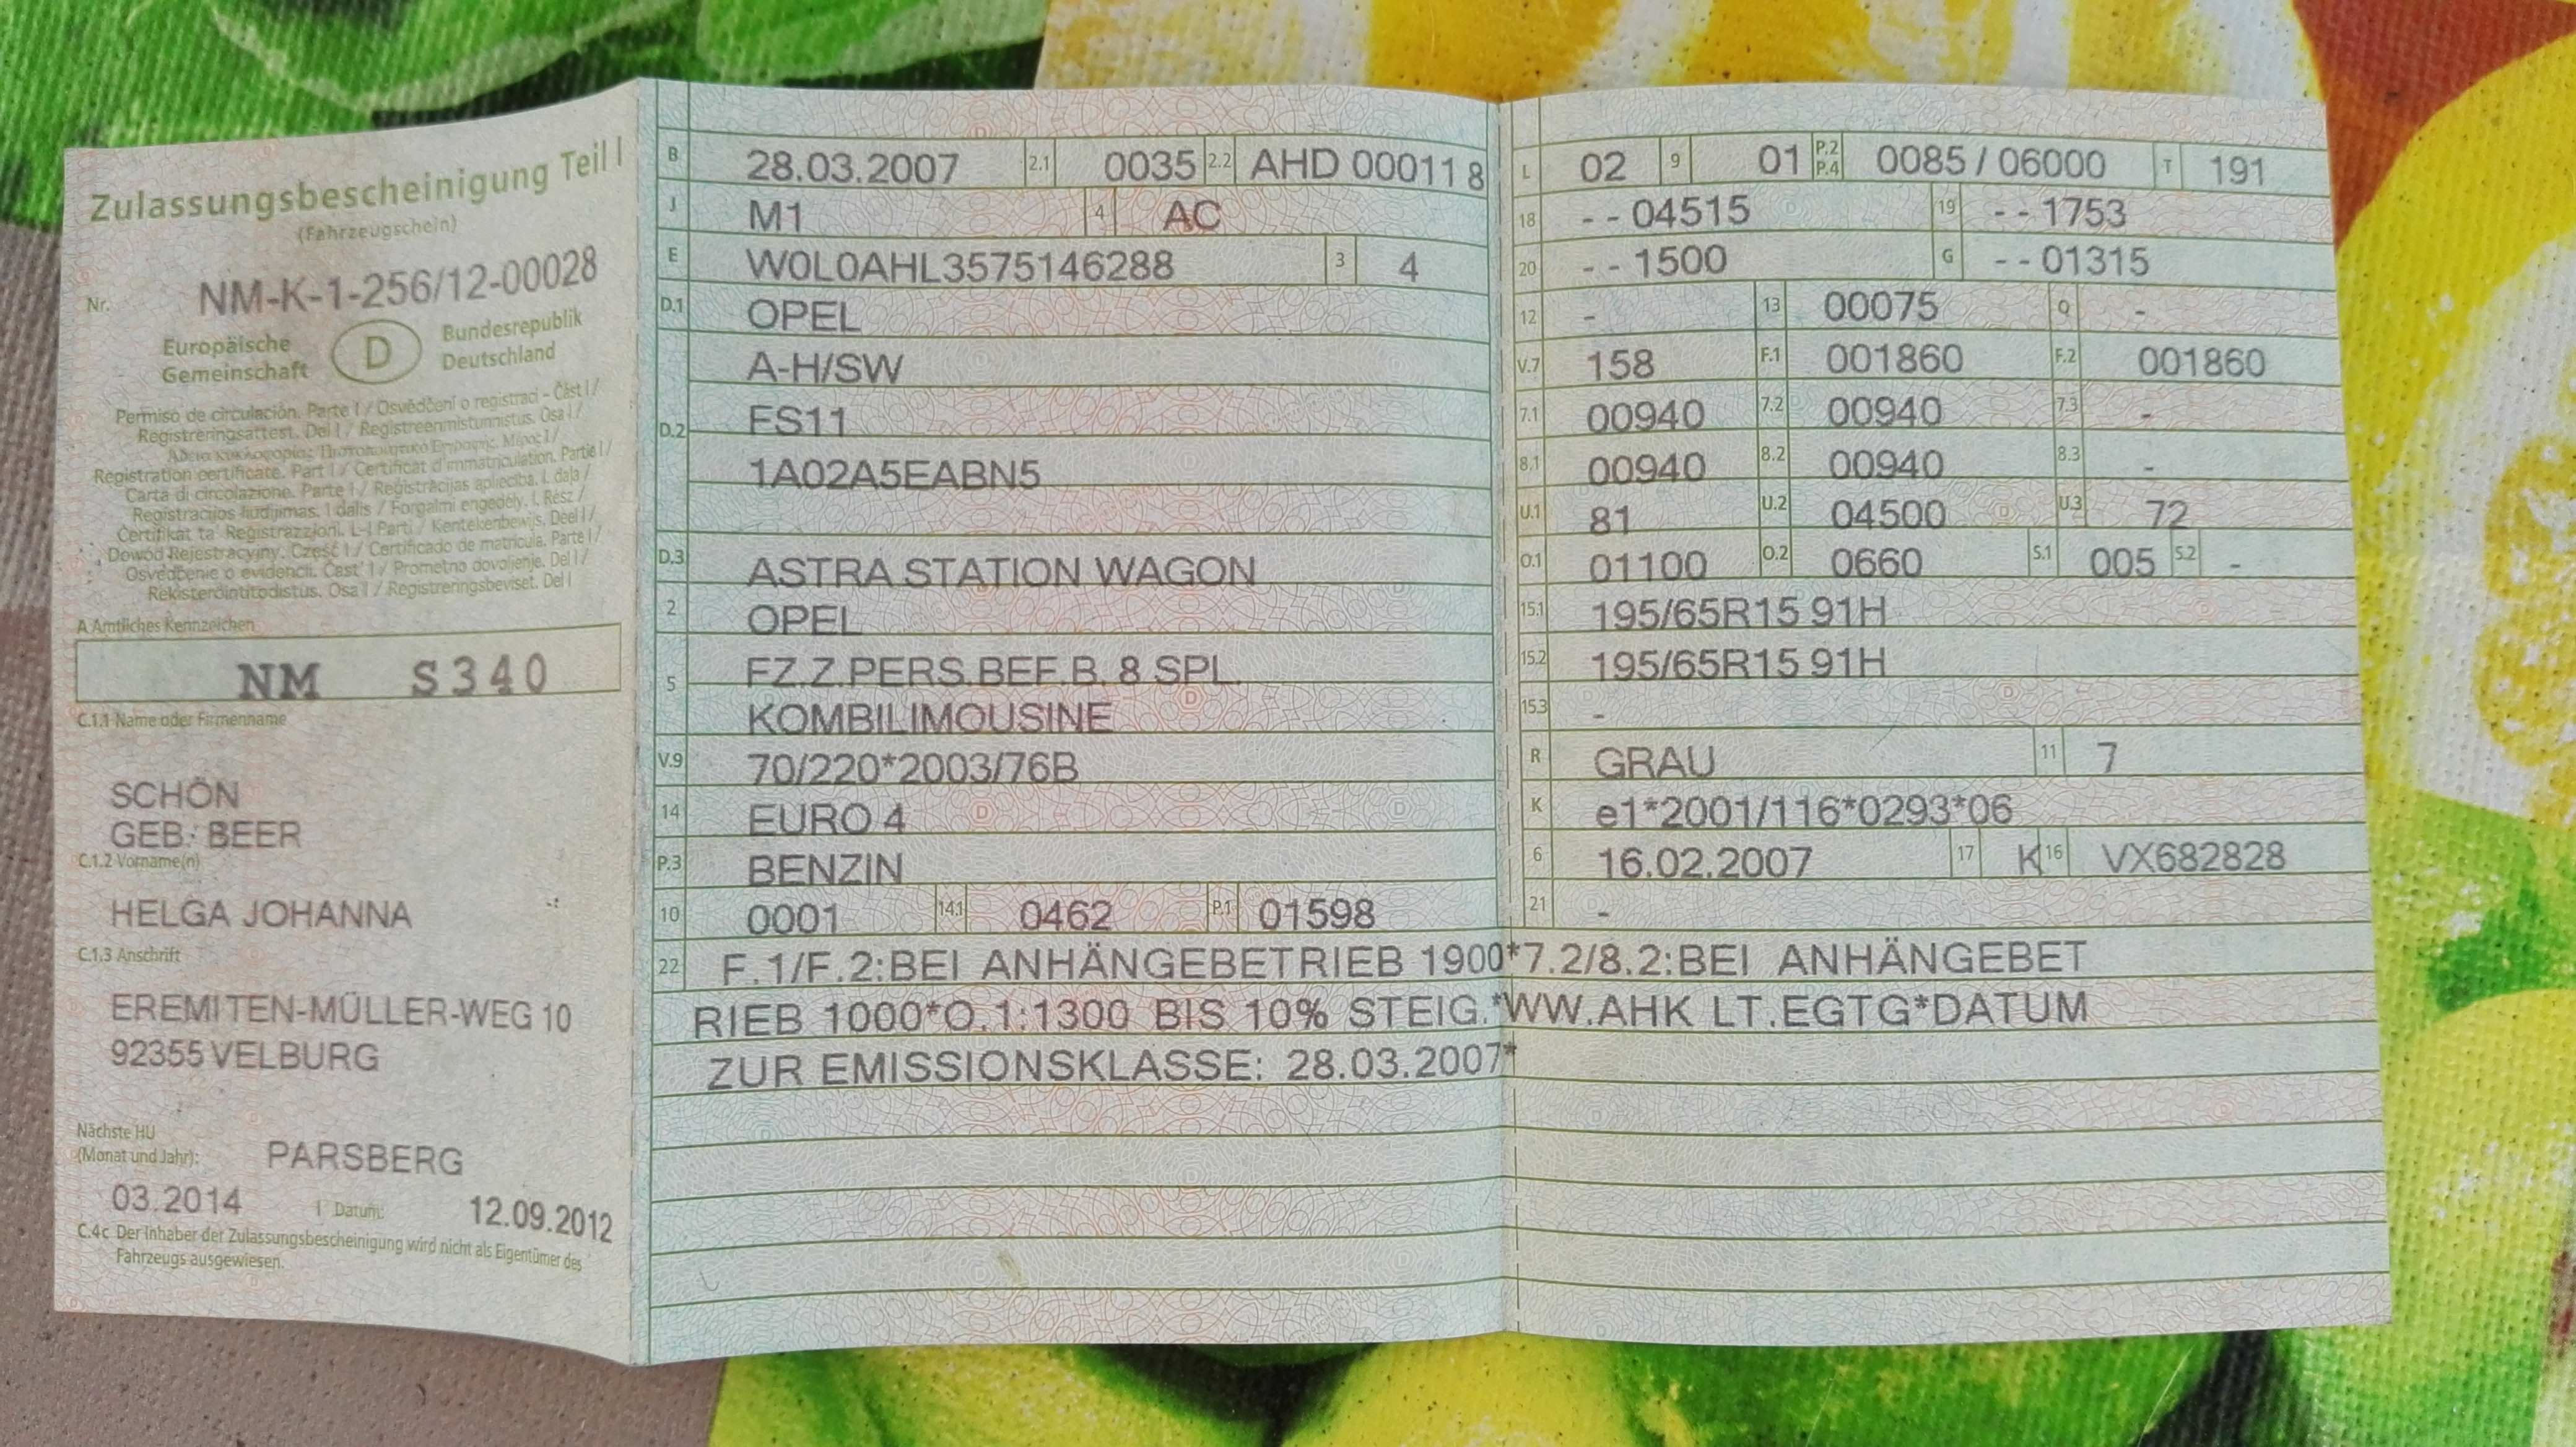 Zulassungsbescheinigung Teil I
(Fahrzeugschein)
Nr. NM-K-1-256/12-00028
Europäische Gemeinschaft D Bundesrepublik Deutschland
Permiso de circulación. Parte I / Osvědčení o registraci - Část I /
Registreringsattest. Del I / Registreerimistunnistus. Osa I /
Άδεια κυκλοφορίας Πιστοποιητικό Εγγραφής. Μέρος I /
Registration certificate. Part I / Certificat d'immatriculation. Partie I /
Carta di circolazione. Parte I / Reģistrācijas apliecība. I. daļa /
Registracijos liudijimas. I dalis / Forgalmi engedély. I. Rész /
Certifikat ta' Registrazzjoni. L-I Parti / Kentekenbewijs. Deel I /
Dowód Rejestracyjny. Część I / Certificado de matrícula. Parte I /
Osvedčenie o evidencii. Časť I / Prometno dovoljenje. Del I /
Rekisteröintitodistus. Osa I / Registreringsbeviset. Del I
A Amtliches Kennzeichen
NM S340
C.1.1 Name oder Firmenname
SCHÖN
GEB.: BEER
C.1.2 Vorname(n)
HELGA JOHANNA
C.1.3 Anschrift
EREMITEN-MÜLLER-WEG 10
92355 VELBURG
Nächste HU
(Monat und Jahr): PARSBERG
03.2014 I Datum: 12.09.2012
C.4c Der Inhaber der Zulassungsbescheinigung wird nicht als Eigentümer des
Fahrzeugs ausgewiesen.
B 28.03.2007 2.1 0035 2.2 AHD 00011 8
J M1 4 AC
E W0L0AHL3575146288 3 4
D.1 OPEL
A-H/SW
D.2 FS11
1A02A5EABN5
D.3 ASTRA STATION WAGON
2 OPEL
5 FZ.Z.PERS.BEF.B. 8 SPL.
KOMBILIMOUSINE
V.9 70/220*2003/76B
14 EURO 4
P.3 BENZIN
10 0001 14.1 0462 P.1 01598
L 02 9 01 P.2 P.4 0085 / 06000 T 191
18 - - 04515 19 - - 1753
20 - - 1500 G - - 01315
12 - 13 00075 Q -
V.7 158 F.1 001860 F.2 001860
7.1 00940 7.2 00940 7.3 -
8.1 00940 8.2 00940 8.3 -
U.1 81 U.2 04500 U.3 72
O.1 01100 O.2 0660 S.1 005 S.2 -
15.1 195/65R15 91H
15.2 195/65R15 91H
15.3 -
R GRAU 11 7
K e1*2001/116*0293*06
6 16.02.2007 17 K 16 VX682828
21 -
22 F.1/F.2:BEI ANHÄNGEBETRIEB 1900*7.2/8.2:BEI ANHÄNGEBET
RIEB 1000*O.1:1300 BIS 10% STEIG.*WW.AHK LT.EGTG*DATUM
ZUR EMISSIONSKLASSE: 28.03.2007*